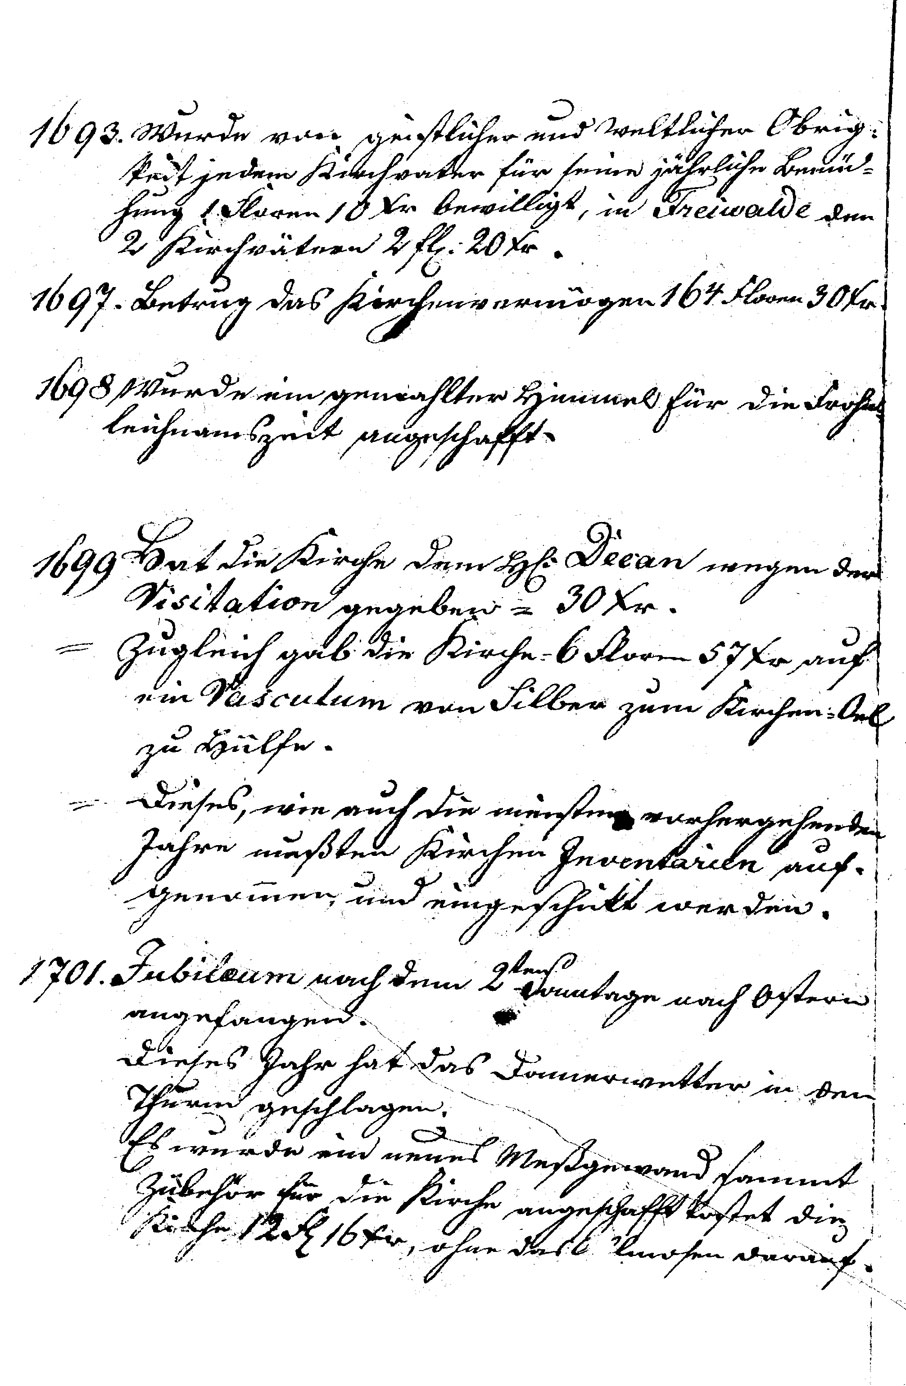 1693. Wurde von geistlicher und weltlicher Obrig-
keit jedem Kirchvater für seine jährliche Bemü-
hung 1 Floren 10 Xr bewilligt, in Freiwalde den
2 Kirchvätern 2 fl: 20 Xr.
1697. Betrug das Kirchenvermögen 164 Floren 30 Xr.
1698 Wurde ein gemahlter Himmel für die Frohn-
leichnamszeit angeschafft.
1699 Hat die Kirche dem H: Decan wegen der
Visitation gegeben = 30 Xr.
= Zugleich gab die Kirche = 6 Floren 57 Xr auf
ein Vasculum von Silber zum Kirchen-Oel
zu Hülfe.
= Dieses, wie auch die meisten vorhergehenden
Jahre mußten Kirchen Inventarien auf-
genomen, und eingeschikt werden.
1701. Jubilæum nach dem 2ten Sonntage nach Ostern
angefangen.
Dieses Jahr hat das Donnerwetter in den
Thurm geschlagen.
Es wurde ein neues Meßgewand sammt
Zubehör für die Kirche angeschafft kostet die
Kirche 12 fl 16 Xr, ohne das Almosen darauf.